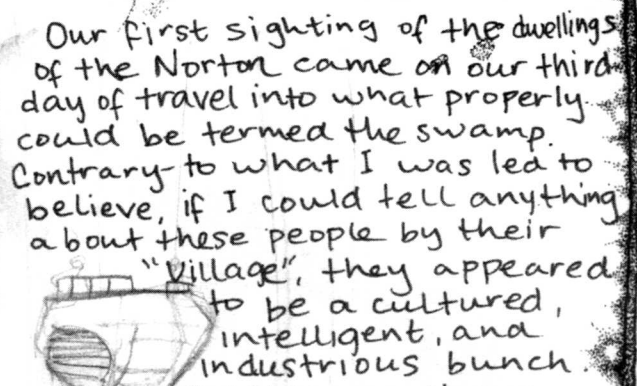 Our first sighting of the dwellings
of the Norton came on our third
day of travel into what properly
could be termed the swamp.
Contrary to what I was led to
believe, if I could tell anything
about these people by their
"Village", they appeared
to be a cultured,
intelligent, and
industrious bunch.